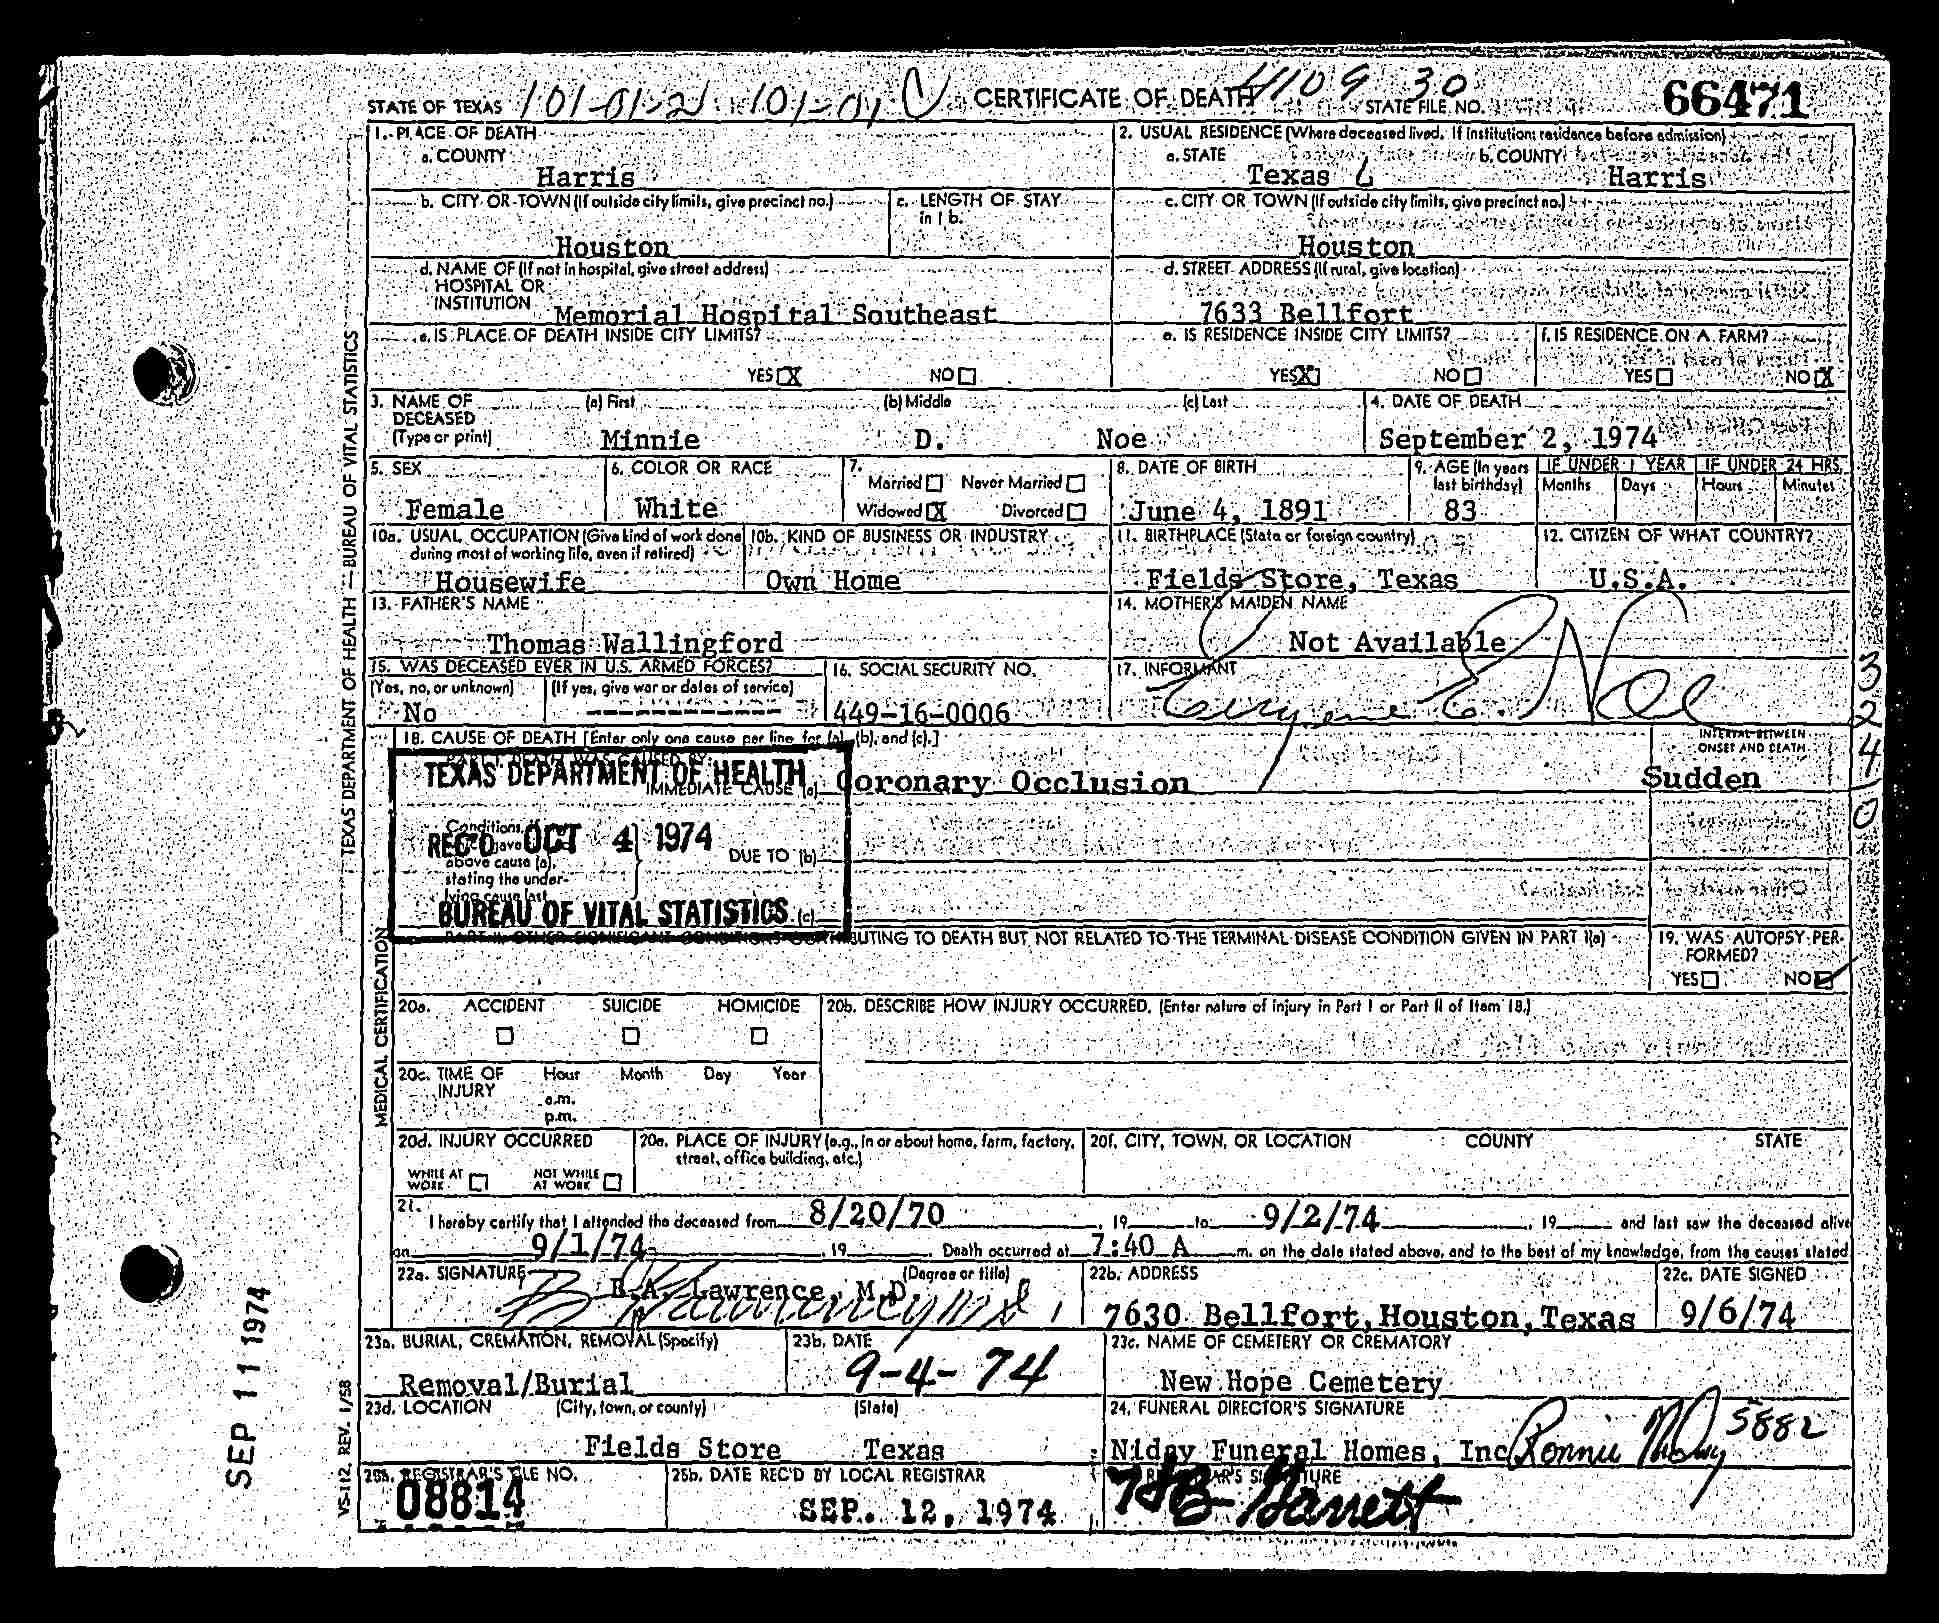 STATE OF TEXAS 101-01-21 101-01 CERTIFICATE OF DEATH 4109 30 STATE FILE NO. 66471
1. PLACE OF DEATH
a. COUNTY
Harris
2. USUAL RESIDENCE (Where deceased lived. If institution: residence before admission)
a. STATE b. COUNTY
Texas Harris
b. CITY OR TOWN (If outside city limits, give precinct no.)
Houston
c. LENGTH OF STAY
in 1 b.
c. CITY OR TOWN (If outside city limits, give precinct no.)
Houston
d. NAME OF (If not in hospital, give street address)
HOSPITAL OR
INSTITUTION Memorial Hospital Southeast
d. STREET ADDRESS (If rural, give location)
7633 Bellfort
e. IS PLACE OF DEATH INSIDE CITY LIMITS?
YES X NO
e. IS RESIDENCE INSIDE CITY LIMITS?
YES X NO
f. IS RESIDENCE ON A FARM?
YES NO X
3. NAME OF (a) First (b) Middle (c) Last
DECEASED
(Type or print) Minnie D. Noe
4. DATE OF DEATH
September 2, 1974
5. SEX
Female
6. COLOR OR RACE
White
7.
Married Never Married
Widowed X Divorced
8. DATE OF BIRTH
June 4, 1891
9. AGE (In years
last birthday)
83
IF UNDER 1 YEAR
Months Days
IF UNDER 24 HRS.
Hours Minutes
10a. USUAL OCCUPATION (Give kind of work done
during most of working life, even if retired)
Housewife
10b. KIND OF BUSINESS OR INDUSTRY
Own Home
11. BIRTHPLACE (State or foreign country)
Fields Store, Texas
12. CITIZEN OF WHAT COUNTRY?
U.S.A.
13. FATHER'S NAME
Thomas Wallingford
14. MOTHER'S MAIDEN NAME
Not Available
15. WAS DECEASED EVER IN U.S. ARMED FORCES?
(Yes, no, or unknown) (If yes, give war or dates of service)
No ------------
16. SOCIAL SECURITY NO.
449-16-0006
17. INFORMANT
E. Noe
3240
18. CAUSE OF DEATH [Enter only one cause per line for (a), (b), and (c).]
INTERVAL BETWEEN
ONSET AND DEATH
PART I. DEATH WAS CAUSED BY:
IMMEDIATE CAUSE (a) Coronary Occlusion Sudden
Conditions, if
gave
above cause (a),
stating the under-
lying cause last.
DUE TO (b)
(c)
TEXAS DEPARTMENT OF HEALTH
REC'D OCT 4 1974
BUREAU OF VITAL STATISTICS
PART II. OTHER SIGNIFICANT CONDITIONS CONTRIBUTING TO DEATH BUT NOT RELATED TO THE TERMINAL DISEASE CONDITION GIVEN IN PART I(a)
19. WAS AUTOPSY PER-
FORMED?
YES NO
20a. ACCIDENT SUICIDE HOMICIDE
20b. DESCRIBE HOW INJURY OCCURRED. (Enter nature of injury in Part I or Part II of Item 18.)
20c. TIME OF Hour Month Day Year
INJURY
a.m.
p.m.
20d. INJURY OCCURRED
WHILE AT
WORK
NOT WHILE
AT WORK
20e. PLACE OF INJURY (e.g., in or about home, farm, factory,
street, office building, etc.)
20f. CITY, TOWN, OR LOCATION COUNTY STATE
21.
I hereby certify that I attended the deceased from 8/20/70, 19 to 9/2/74, 19 and last saw the deceased alive
on 9/1/74, 19 . Death occurred at 7:40 A m. on the date stated above, and to the best of my knowledge, from the causes stated
22a. SIGNATURE (Degree or title)
B.A. Lawrence, M.D.
22b. ADDRESS
7630 Bellfort, Houston, Texas
22c. DATE SIGNED
9/6/74
23a. BURIAL, CREMATION, REMOVAL (Specify)
Removal/Burial
23b. DATE
9-4-74
23c. NAME OF CEMETERY OR CREMATORY
New Hope Cemetery
23d. LOCATION (City, town, or county) (State)
Fields Store Texas
24. FUNERAL DIRECTOR'S SIGNATURE
Niday Funeral Homes, Inc Ronnie 5882
25a. REGISTRAR'S FILE NO.
08814
25b. DATE REC'D BY LOCAL REGISTRAR
SEP. 12, 1974
REGISTRAR'S SIGNATURE
Garrett
TEXAS DEPARTMENT OF HEALTH — BUREAU OF VITAL STATISTICS
MEDICAL CERTIFICATION
VS-112, REV. 1/58
SEP 11 1974